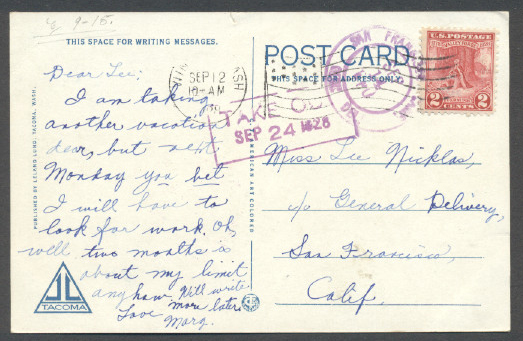 9-15.
THIS SPACE FOR WRITING MESSAGES.
Dear Lee:
I am taking
another vacation
dear, but next
Monday you bet
I will have to
look for work. Oh,
well two months is
about my limit
anyhow. Will write
more later.
Love
Marg.
PUBLISHED BY LELAND LUND, TACOMA, WASH.
TACOMA
POST CARD
THIS SPACE FOR ADDRESS ONLY
SEP 12
SAN FRAN
TAKE OU
SEP 24 1928
U.S. POSTAGE
2 2
CENTS
Miss Lee Nicklas,
c/o General Delivery,
San Francisco,
Calif.